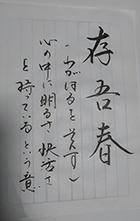 存吾春
(わがはるを存す)
心の中に明るさ、快活さ
を持っているという意